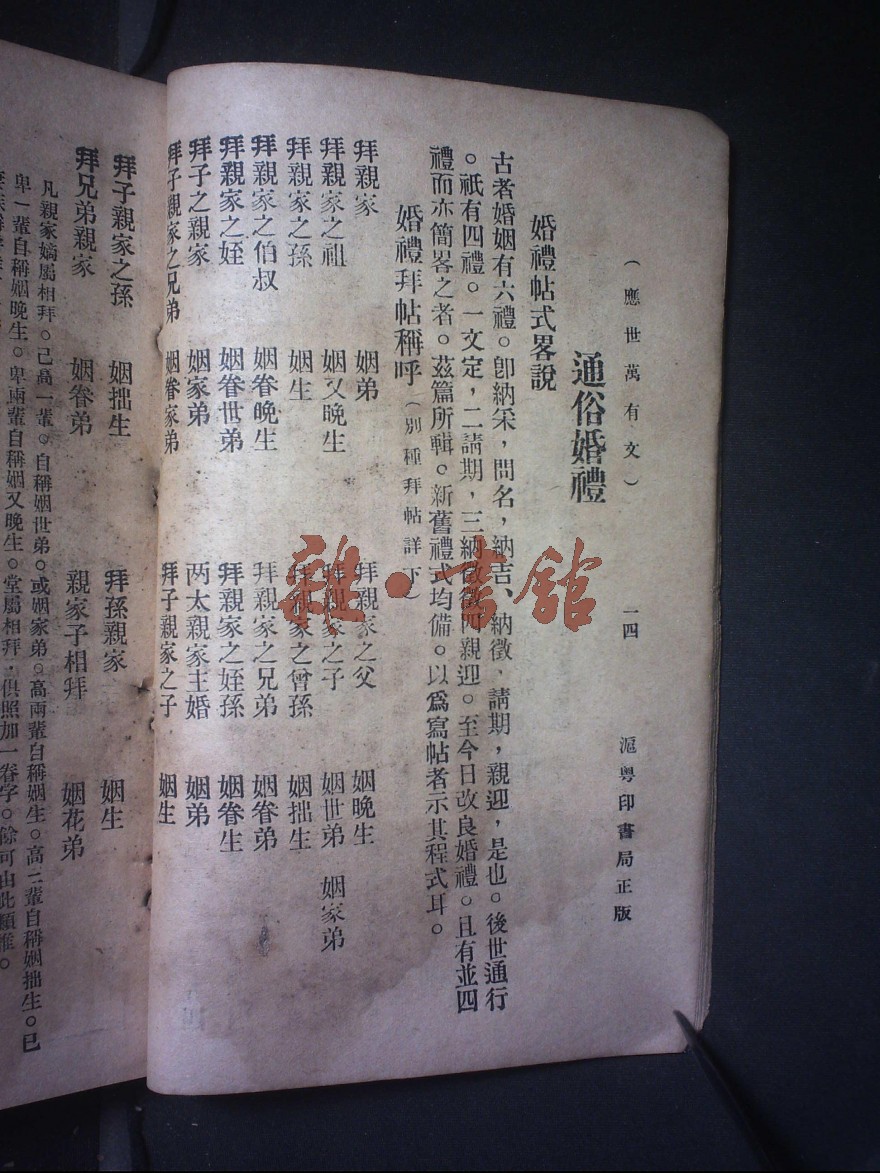 （應世萬有文）　一四　滬粵印書局正版
通俗婚禮
婚禮帖式畧說
古者婚姻有六禮。卽納采，問名，納吉、納徵，請期，親迎，是也。後世通行
。祇有四禮。一文定，二請期，三納徵，四親迎。至今日改良婚禮。且有並四
禮而亦簡畧之者。茲篇所輯。新舊禮式均備。以爲寫帖者示其程式耳。
婚禮拜帖稱呼（別種拜帖詳下）
拜親家　姻弟　拜親家之父　姻晚生
拜親家之祖　姻又晚生　拜親家之子　姻世弟　姻家弟
拜親家之孫　姻生　拜親家之曾孫　姻拙生
拜親家之伯叔　姻眷晚生　拜親家之兄弟　姻眷弟
拜親家之姪　姻眷世弟　拜親家之姪孫　姻眷生
拜子之親家　姻家弟　两太親家主婚　姻弟
拜子親家之兄弟　姻眷家弟　拜子親家之子　姻生
拜子親家之孫　姻拙生　拜孫親家　姻生
拜兄弟親家　姻眷弟　親家子相拜　姻花弟
凡親家嫡屬相拜。己高一輩。自稱姻世弟。或姻家弟。高兩輩自稱姻生。高三輩自稱姻拙生。己
卑一輩自稱姻晚生。卑兩輩自稱姻又晚生。堂屬相拜．俱照加一眷字。餘可由此類推。
雜·書館